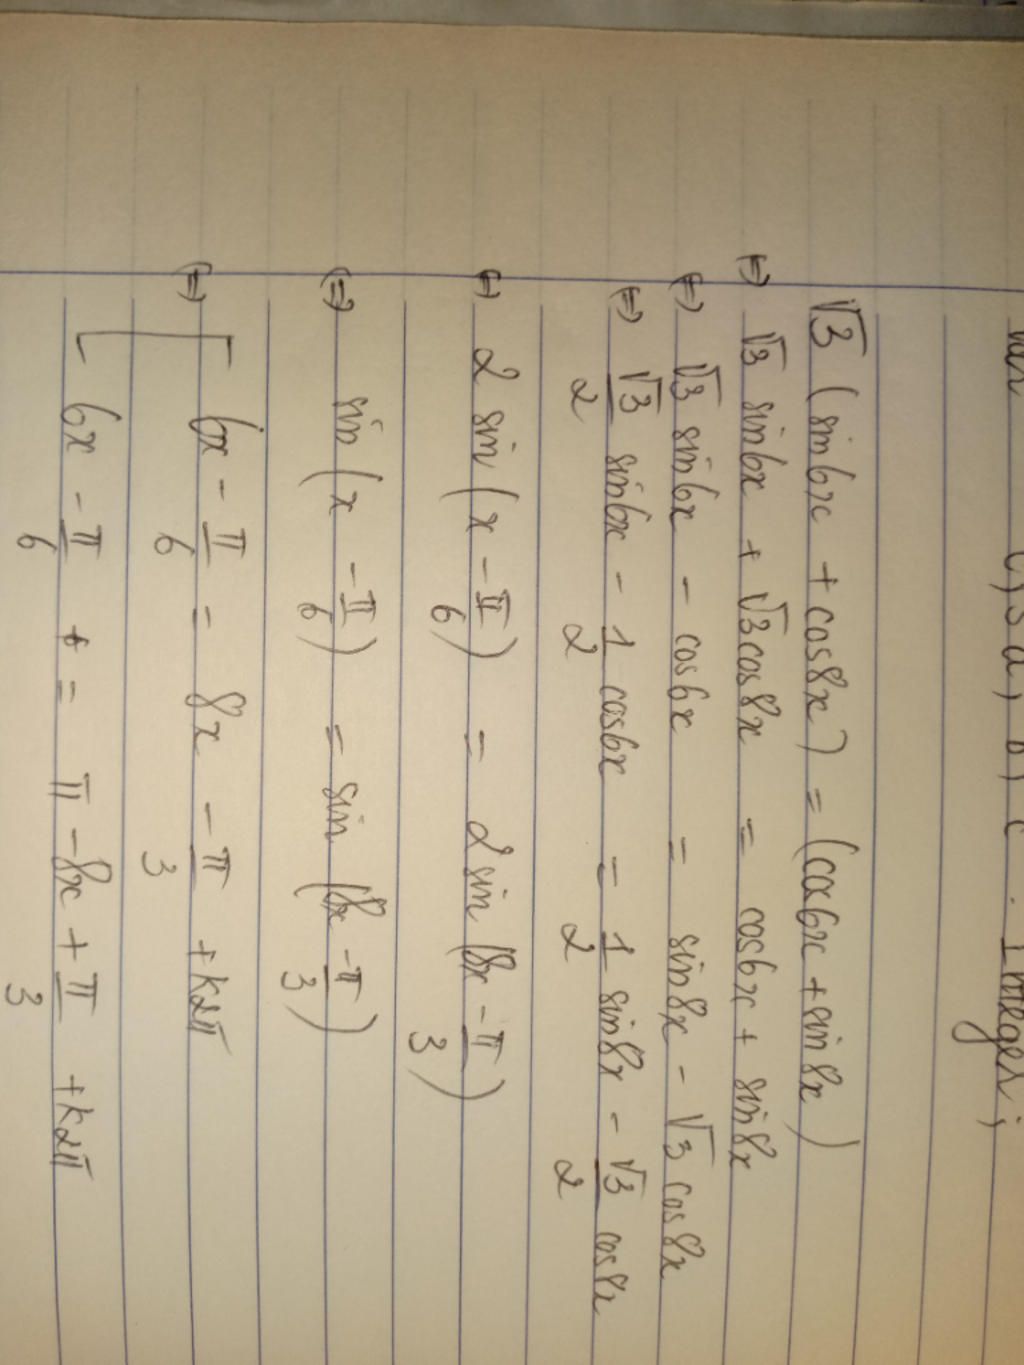 c) 3 a) b) c. Integer;
√3 (sin6x + cos8x) = (cos6x + sin8x)
(=) √3 sin6x + √3cos8x = cos6x + sin8x
(=) √3 sin6x - cos6x = sin8x - √3 cos8x
(=) √3/2 sin6x - 1/2 cos6x = 1/2 sin8x - √3/2 cos8x
(=) 2 sin (x - π/6) = 2 sin (8x - π/3)
(=) sin (x - π/6) = sin (8x - π/3)
(=) [ 6x - π/6 = 8x - π/3 + k2π
[ 6x - π/6 = π - 8x + π/3 + k2π